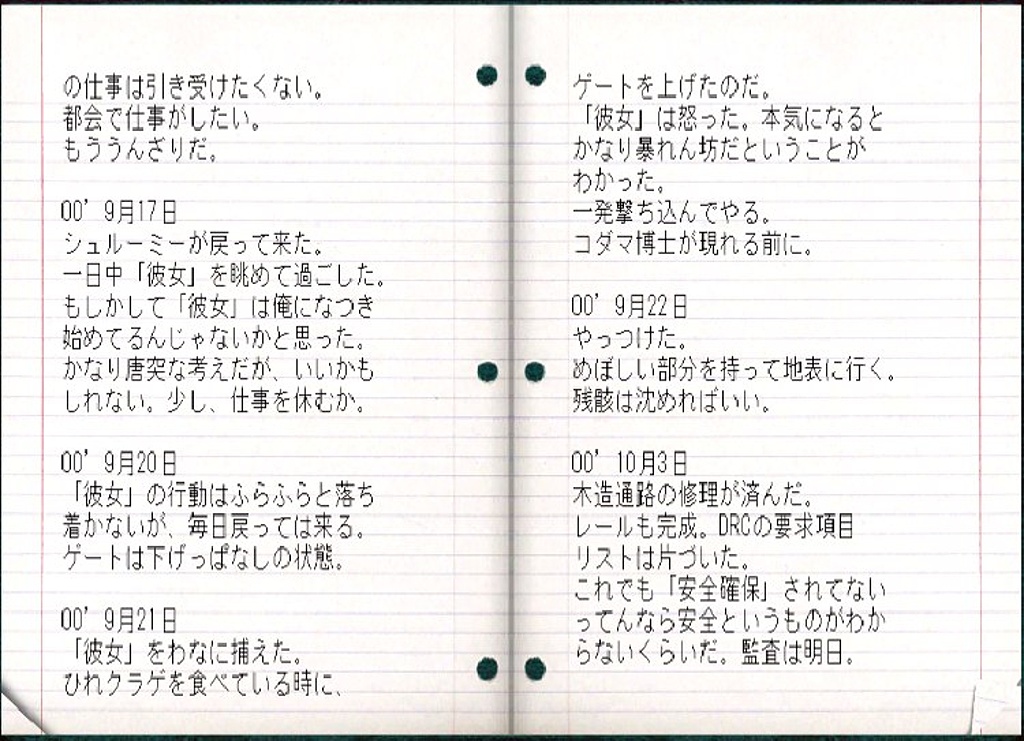 の仕事は引き受けたくない。
都会で仕事がしたい。
もううんざりだ。
00' 9月17日
シュルーミーが戻って来た。
一日中「彼女」を眺めて過ごした。
もしかして「彼女」は俺になつき
始めてるんじゃないかと思った。
かなり唐突な考えだが、いいかも
しれない。少し、仕事を休むか。
00' 9月20日
「彼女」の行動はふらふらと落ち
着かないが、毎日戻っては来る。
ゲートは下げっぱなしの状態。
00' 9月21日
「彼女」をわなに捕えた。
ひれクラゲを食べている時に、
ゲートを上げたのだ。
「彼女」は怒った。本気になると
かなり暴れん坊だということが
わかった。
一発撃ち込んでやる。
コダマ博士が現れる前に。
00' 9月22日
やっつけた。
めぼしい部分を持って地表に行く。
残骸は沈めればいい。
00' 10月3日
木造通路の修理が済んだ。
レールも完成。DRCの要求項目
リストは片づいた。
これでも「安全確保」されてない
ってんなら安全というものがわか
らないくらいだ。監査は明日。